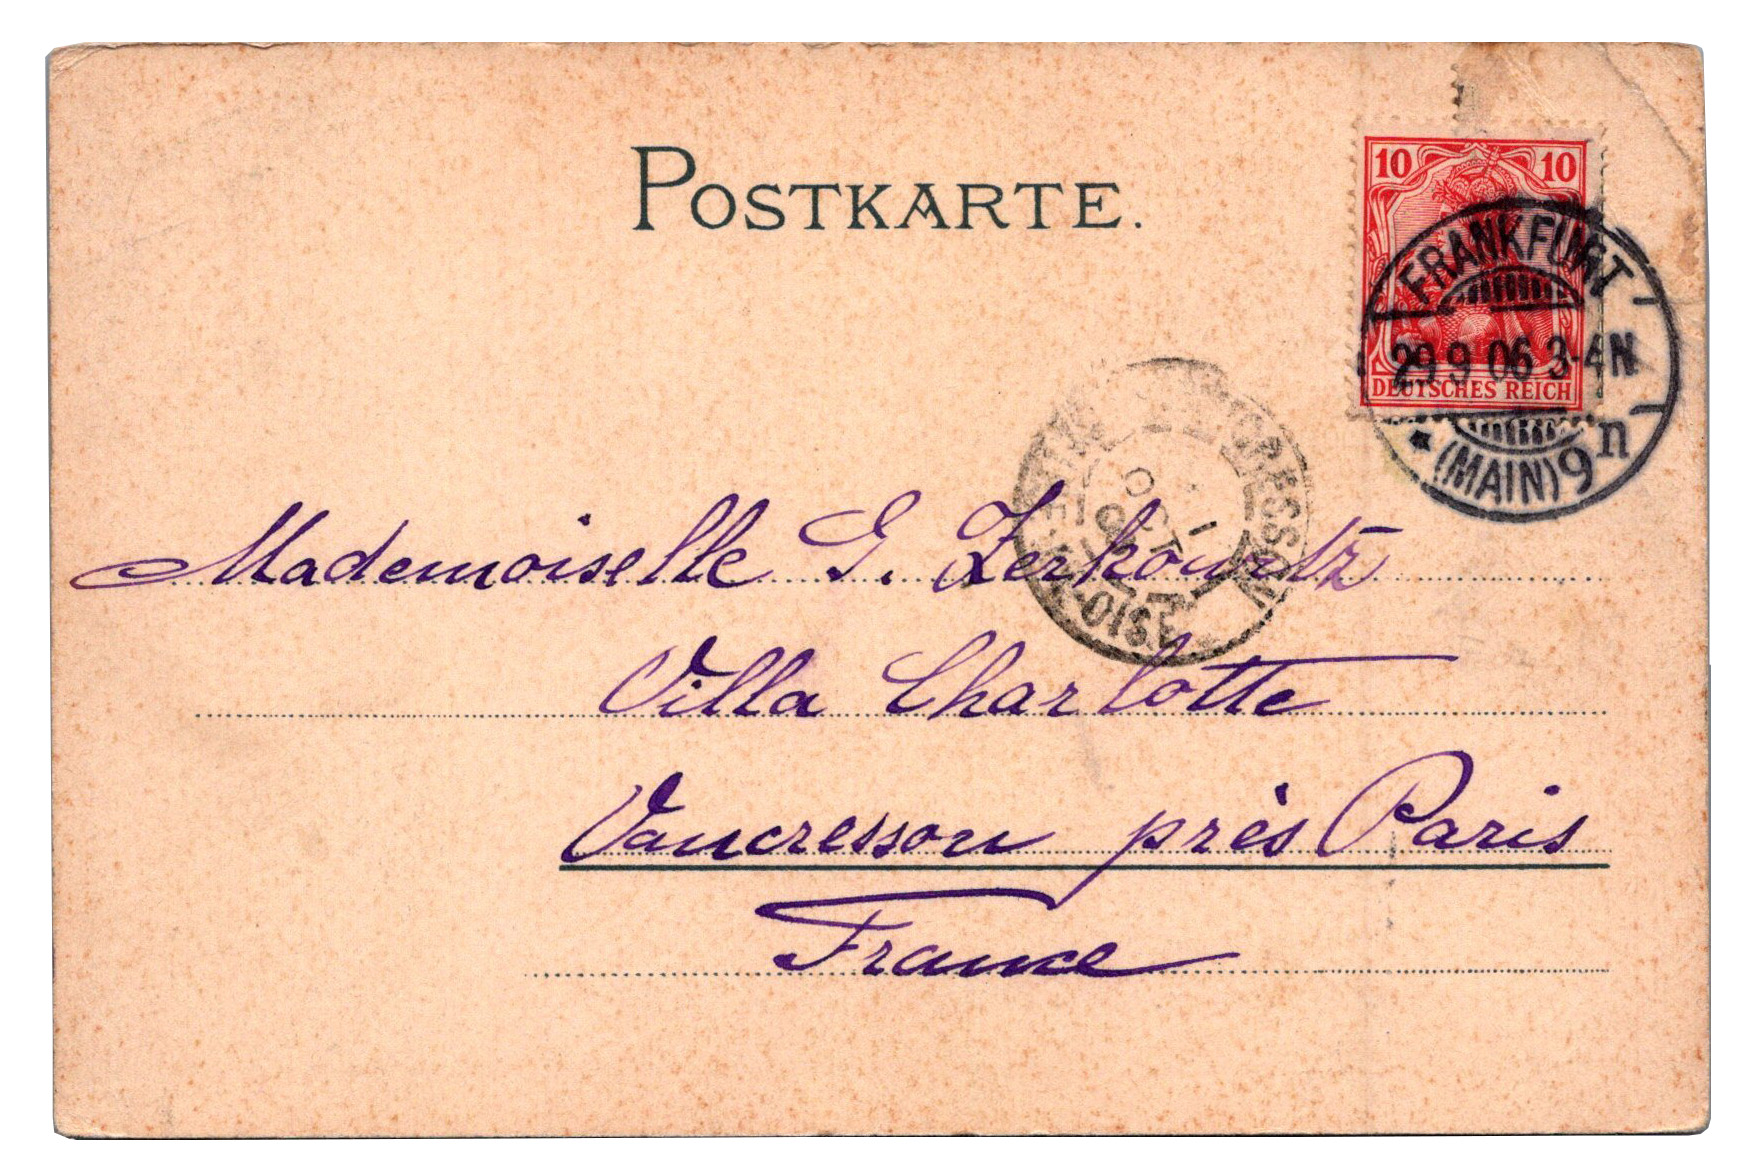 POSTKARTE.
10 10
FRANKFURT
29 9 06 3-4N
DEUTSCHES REICH
* (MAIN) 9 n
Mademoiselle G. Zerkowitz
Villa Charlotte
Vaucresson près Paris
France